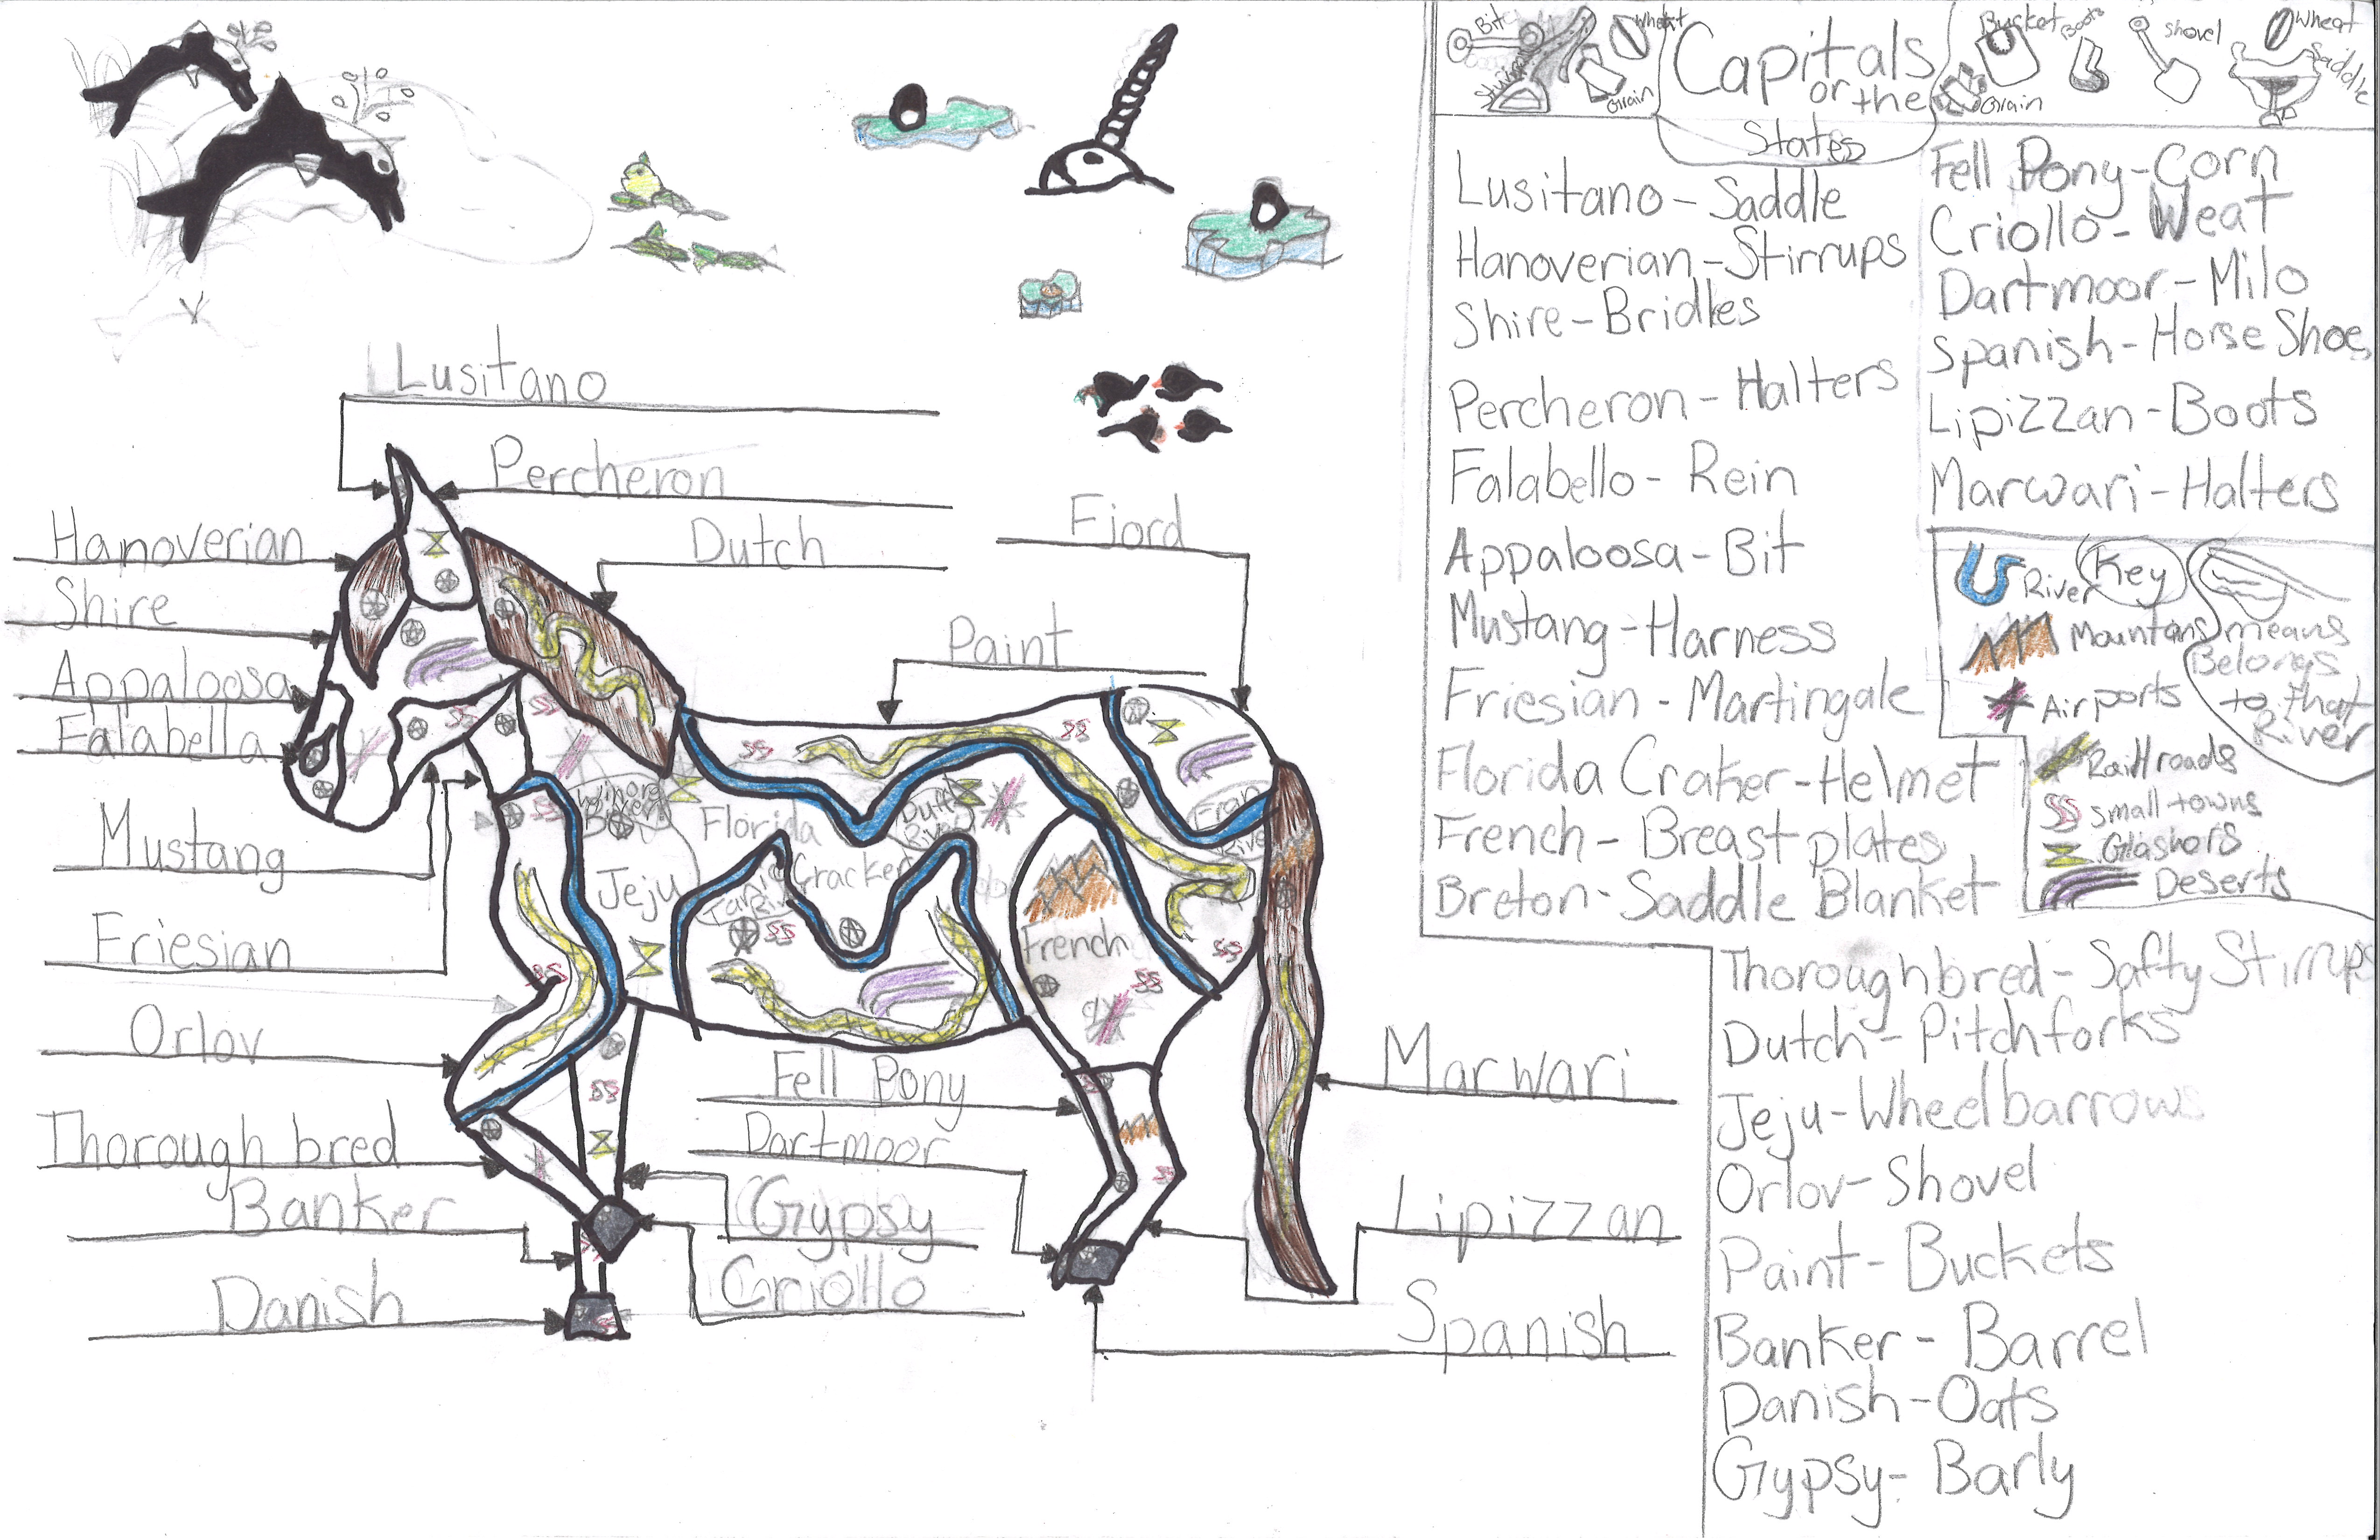 Bit
Stirrup
Wheat
Grain
Capitals
or the
States
Bucket
Boots
Shovel
Wheat
Saddle
Grain
Lusitano - Saddle
Hanoverian - Stirrups
Shire - Bridles
Percheron - Halters
Falabello - Rein
Appaloosa - Bit
Mustang - Harness
Friesian - Martingale
Florida Craker - Helmet
French - Breast plates
Breton - Saddle Blanket
Fell Pony - Corn
Criollo - Weat
Dartmoor - Milo
Spanish - Horse Shoes
Lipizzan - Boots
Marwari - Halters
Key
River
Mountans
Airports
Raillroads
Small towns
Glashors
Deserts
means
Belongs
to that
River
Thoroughbred - Safty Stirrups
Dutch - Pitchforks
Jeju - Wheelbarrows
Orlov - Shovel
Paint - Buckets
Banker - Barrel
Danish - Oats
Gypsy - Barly
Lusitano
Percheron
Hanoverian
Dutch
Fjord
Shire
Paint
Appaloosa
Falabella
Mustang
Friesian
Orlov
Thorough bred
Banker
Danish
Jeju
Florida
Cracker
River
French
Fell Pony
Dartmoor
Gypsy
Criollo
Marwari
Lipizzan
Spanish